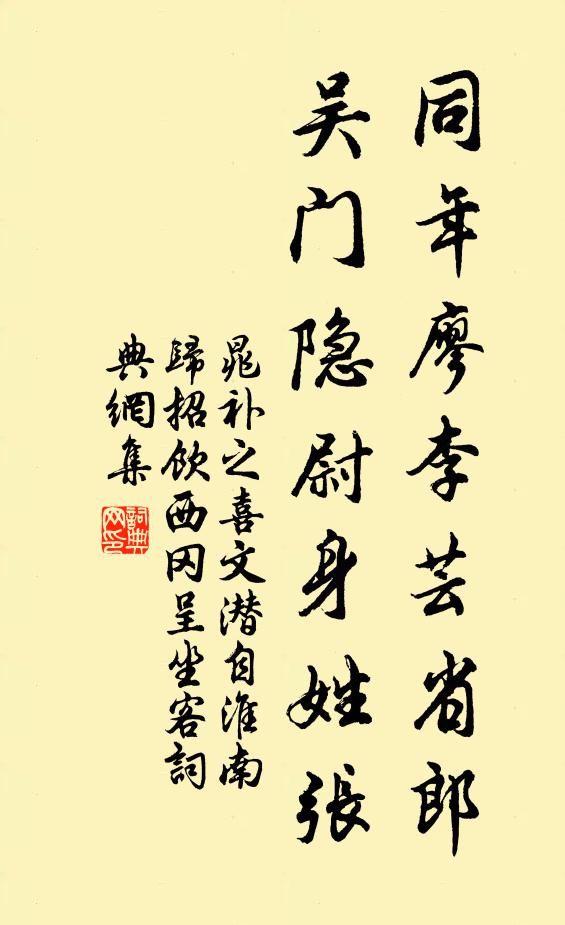 同年廖李芸省郎
吴门隐尉身姓張
晁补之喜文潜自淮南
歸招飲西冈呈坐客詞
典網集
詞典网印